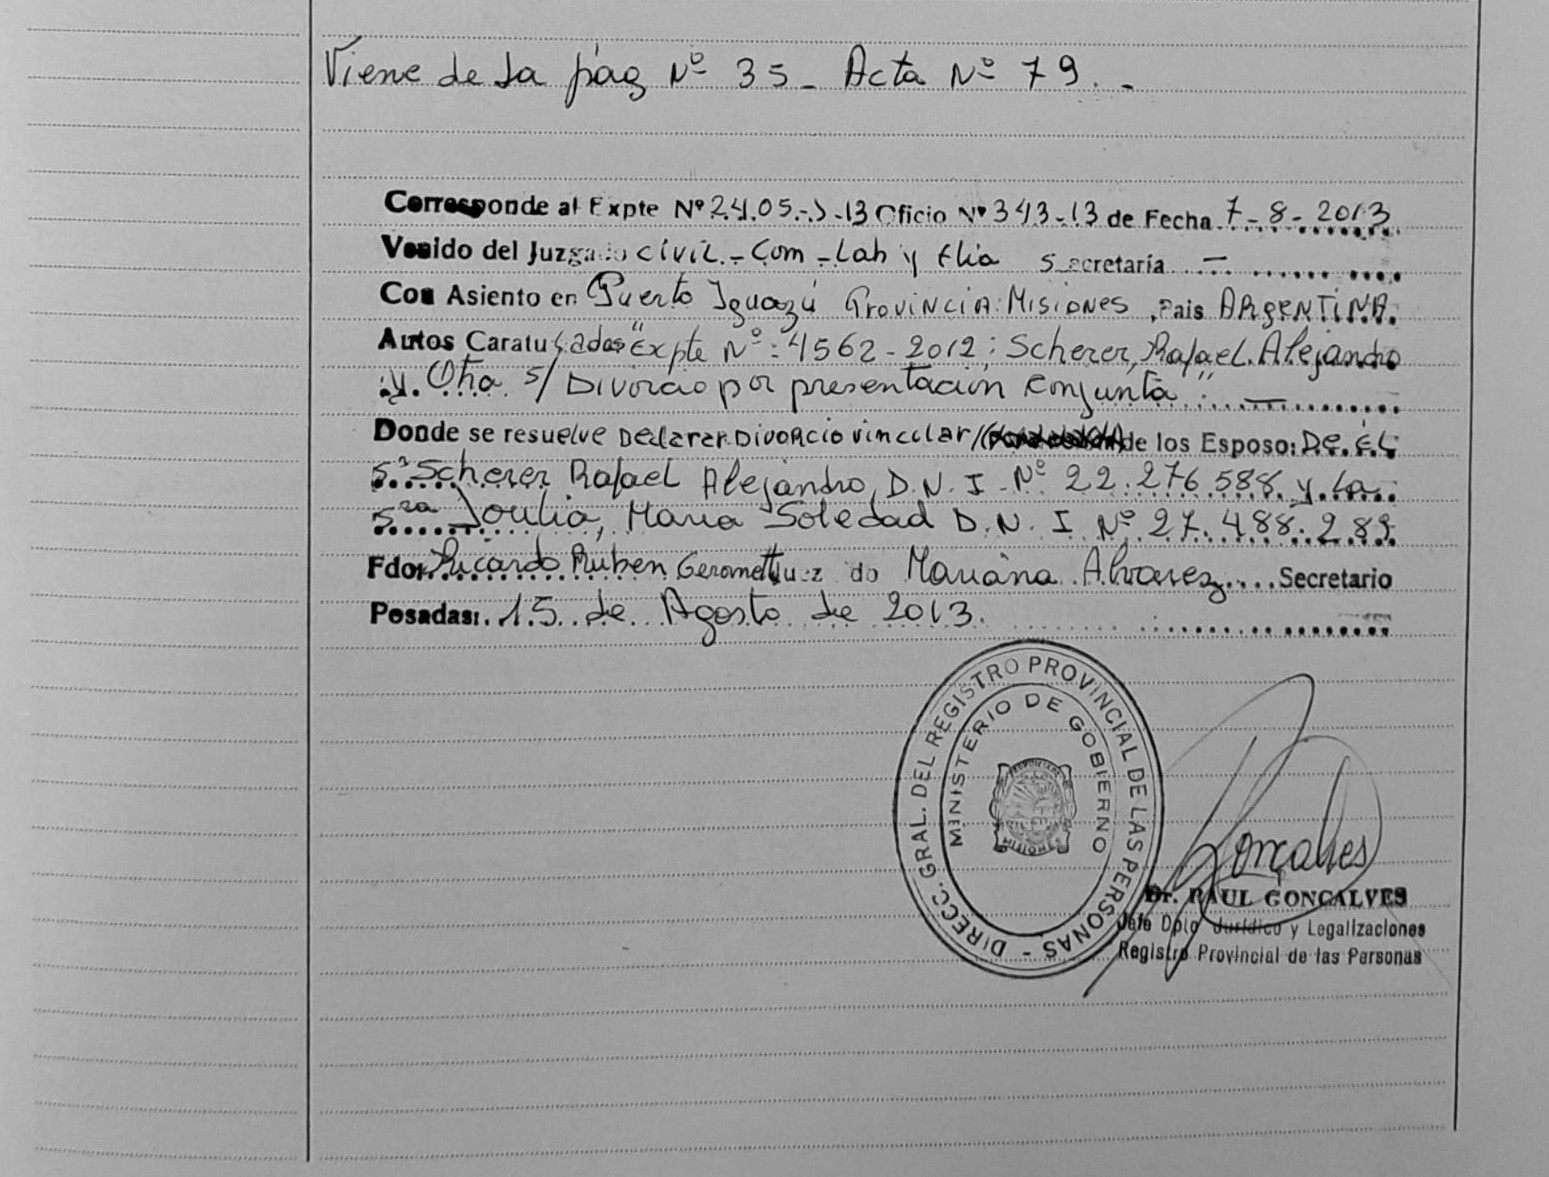 Viene de la pág Nº 35 - Acta Nº 79. -
Corresponde al Expte Nº 2405-J-13 Oficio Nº 343-13 de Fecha 7-8-2013
Venido del Juzgado civil - Com - Lab y flia Secretaría —
Con Asiento en Puerto Iguazú Provincia: Misiones, Pais ARGENTINA.
Autos Caratulados "Expte Nº: 4562-2012: Scherer, Rafael Alejandro
y Otra s/ Divorcio por presentación Conjunta" —
Donde se resuelve Declarar Divorcio vincular / de los Esposo: De. él
Sr Scherer Rafael Alejandro, D.N.I. Nº 22.276.588 y la
Sra , Maria Soledad D.N.I Nº 27.488.289
Fdo: Ricardo Ruben do Mariana Alvarez Secretario
Posadas: 15 de Agosto de 2013.
DIRECC. GRAL. DEL REGISTRO PROVINCIAL DE LAS PERSONAS -
MINISTERIO DE GOBIERNO
Gonçalves
Dr. RAUL GONCALVES
Jefe Dpto Jurídico y Legalizaciones
Registro Provincial de las Personas